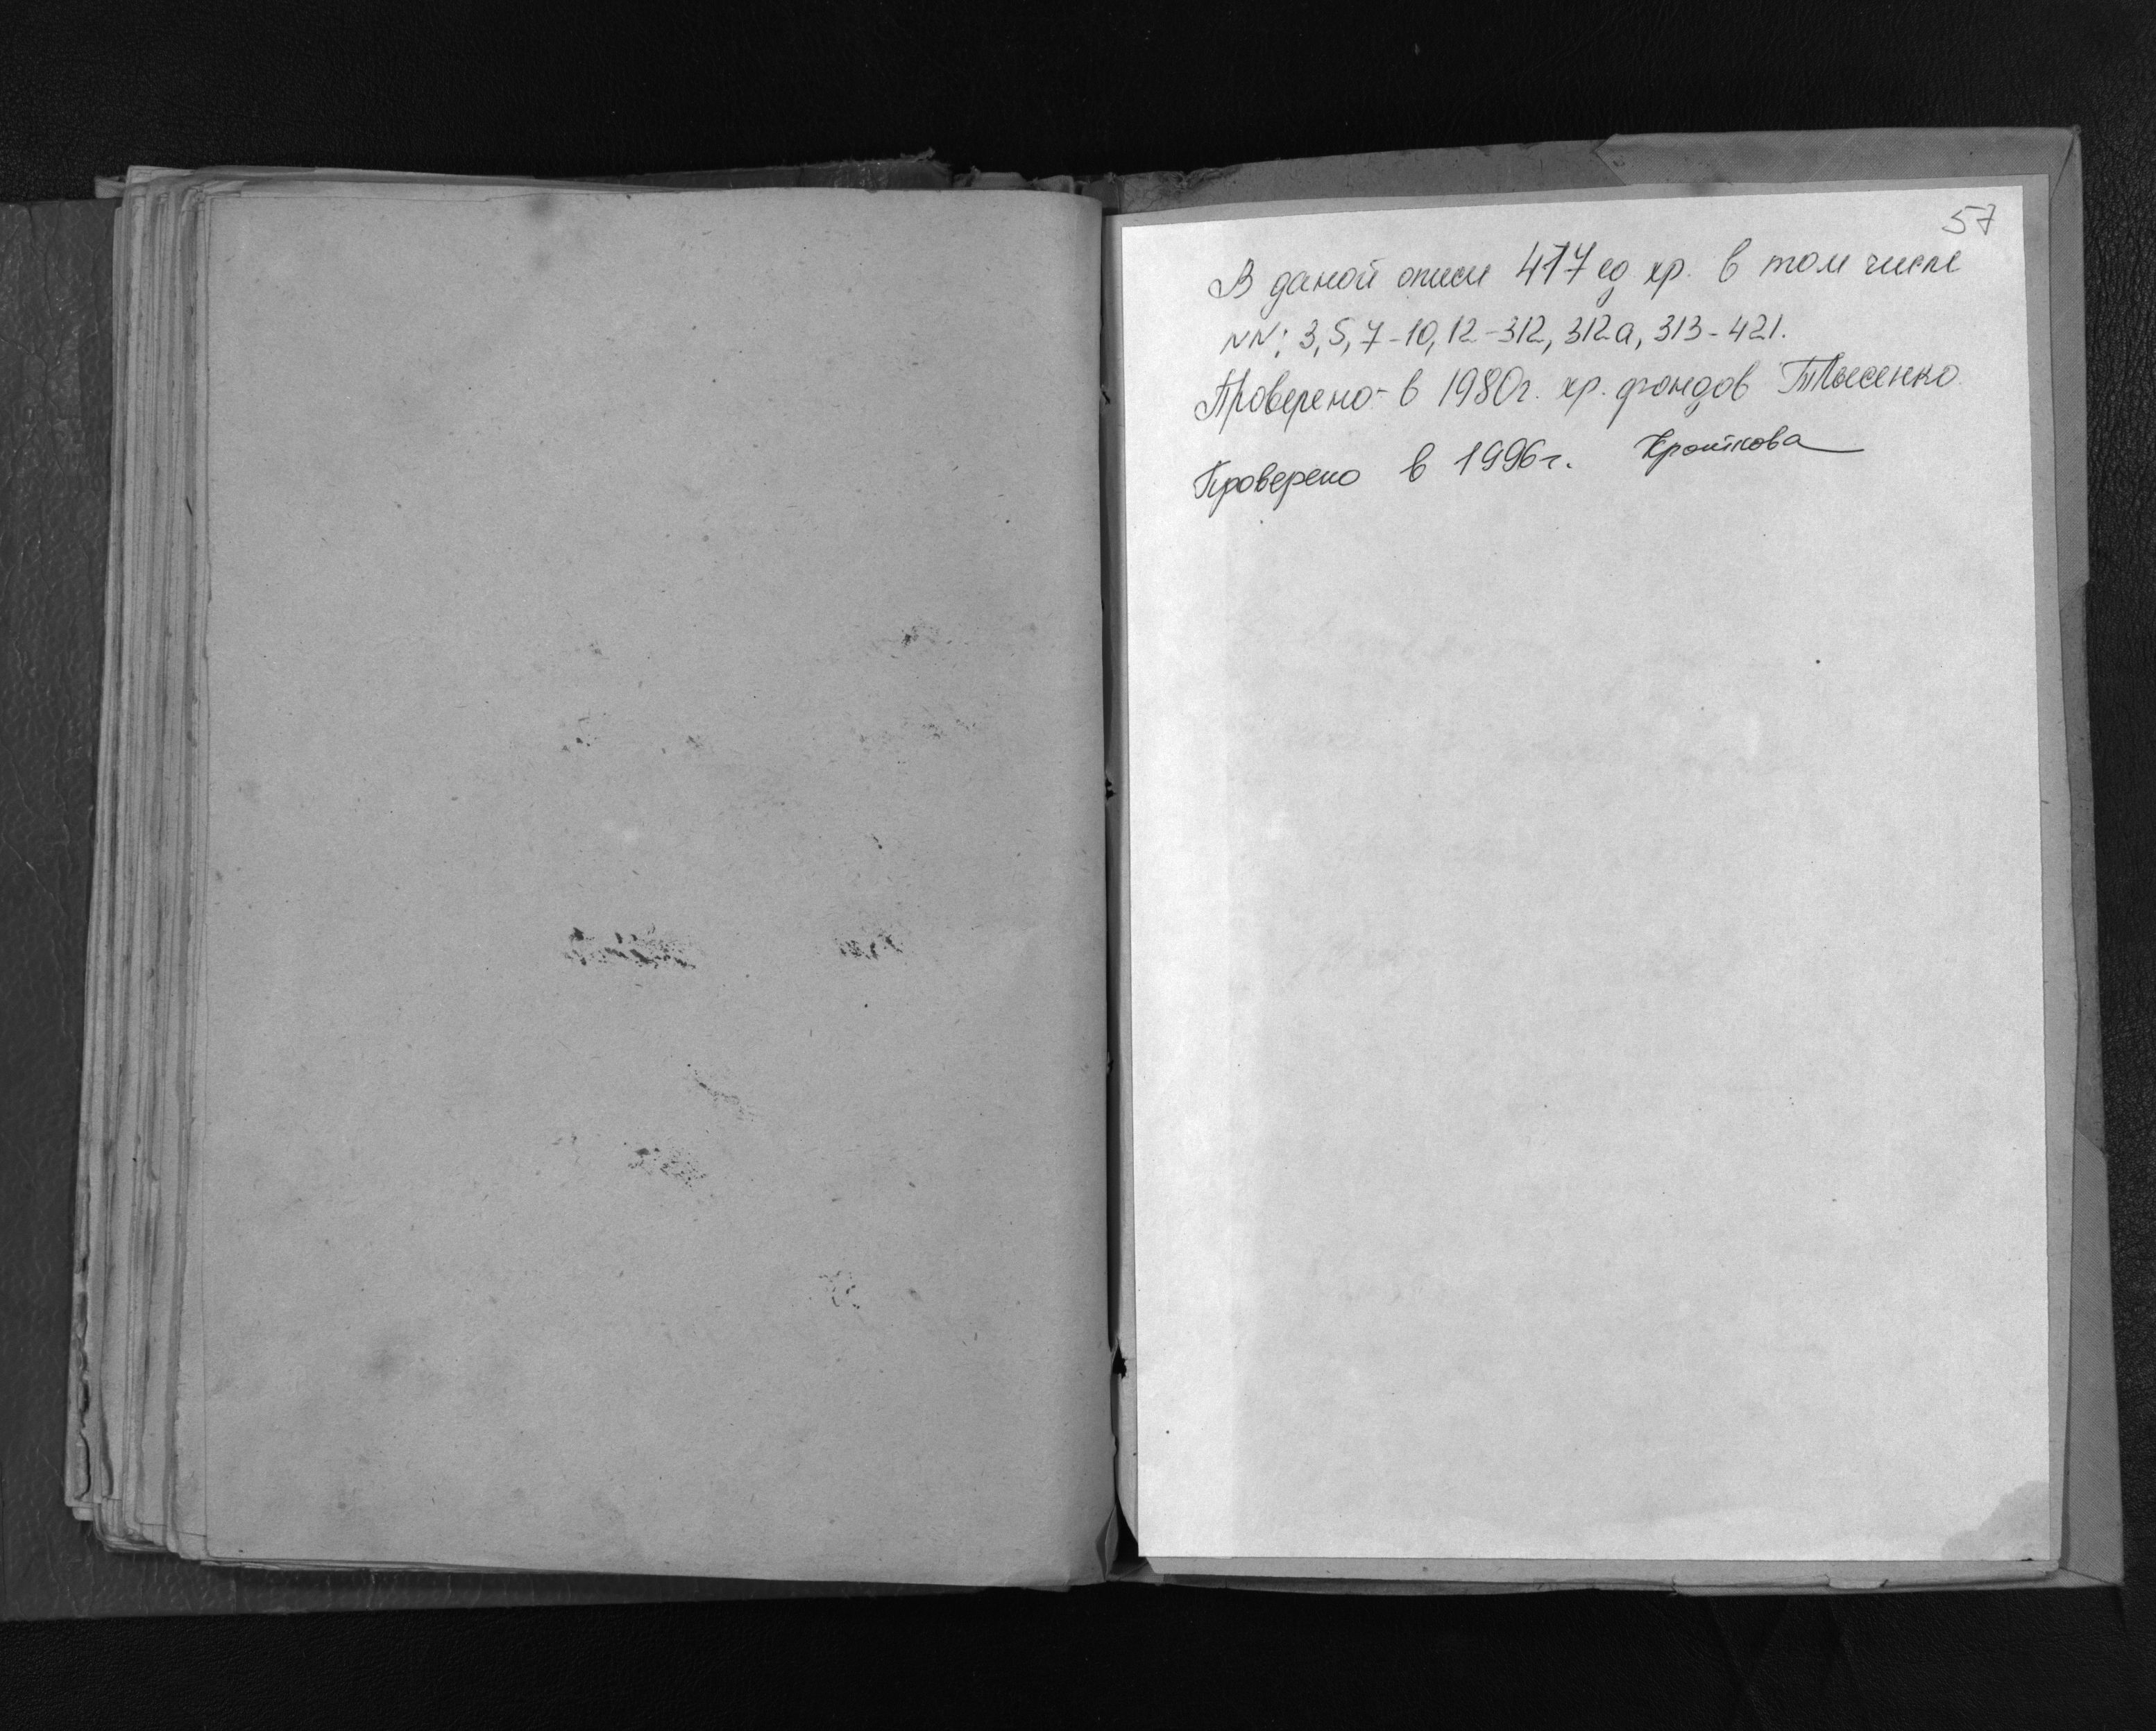 57
В даной описи 417 ед. хр. в том числе
NN: 3, 5, 7-10, 12-312, 312а, 313-421.
Проверено - в 1980г. хр. фондов ТЛысенко
Проверено в 1996г. Кроткова